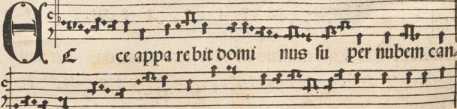 EC ce appa re bit domi nus su per nubem can